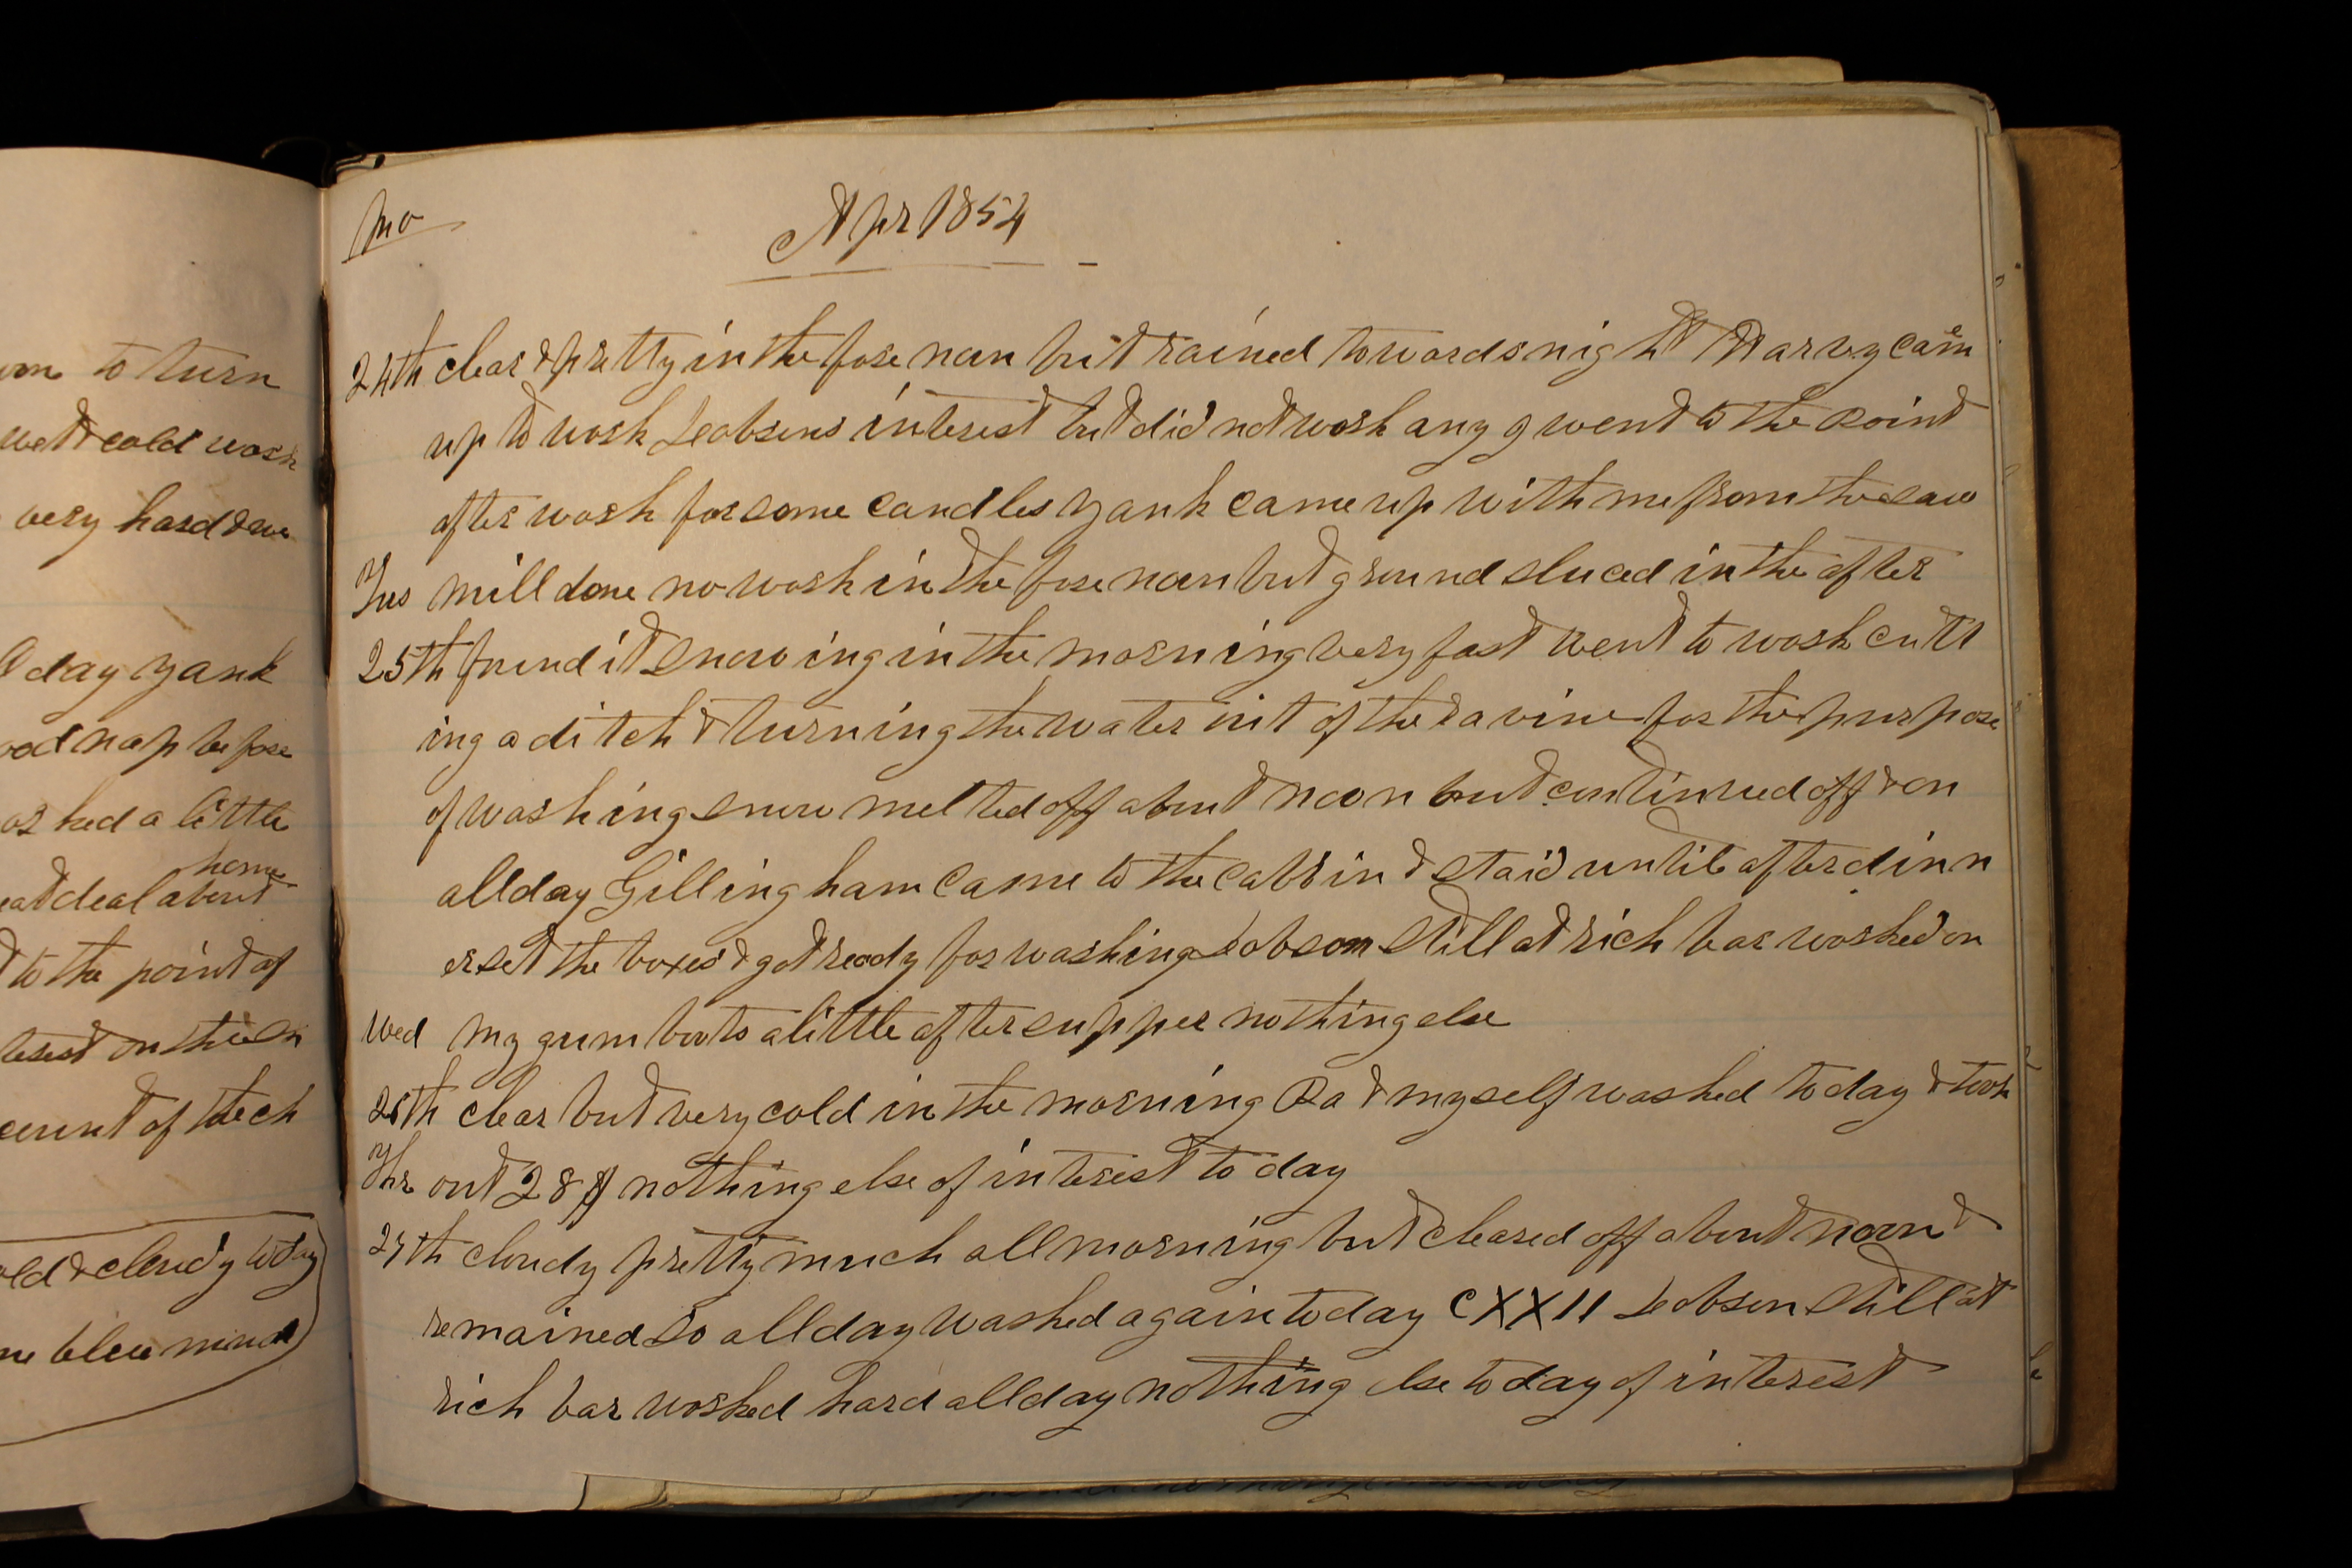 om to turn
wet & cold work
very hard & we
day Yank
nap before
worked a little
home
deal about
to the point of
on the
of the ch
& cloudy today
blue
Mo
Apr 1854
24th clear & pretty in the fore noon but rained towards night Harvy came
up to work Jeobsons interest but did not work any I went to the point
after work for some candles Yank came up with me from the saw
Tus mill done no work in the fore noon but ground sluced in the after
25th found it snowing in the morning very fast went to work cutt
ing a ditch & turning the water out of the ravine for the purpose
of washing snow melted off about noon but continued off & on
all day Gillingham came to the cabbin & staid until after dinn
er set the boxes & got ready for washing Jeobson still at rich bar worked on
Wed my gum boots a little after supper nothing else
26th clear but very cold in the morning Ra & myself washed to day & took
Thr out 28 $ nothing else of interest to day
27th cloudy pretty much all morning but cleared off about noon &
remained so all day washed again today CXXII Jeobson still at
rich bar worked hard all day nothing else to day of interest